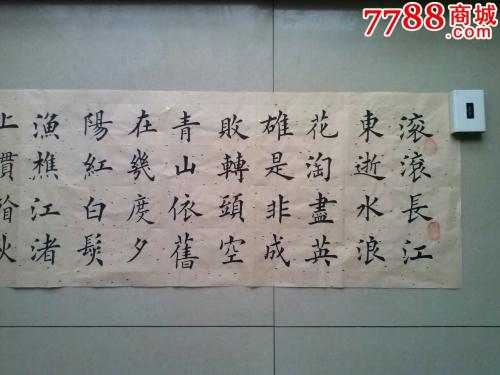 7788商城
滚滚長江
東逝水浪
花淘盡英
雄是非成
敗轉頭空
青山依舊
在幾度夕
陽紅白髮
漁樵江渚
上慣